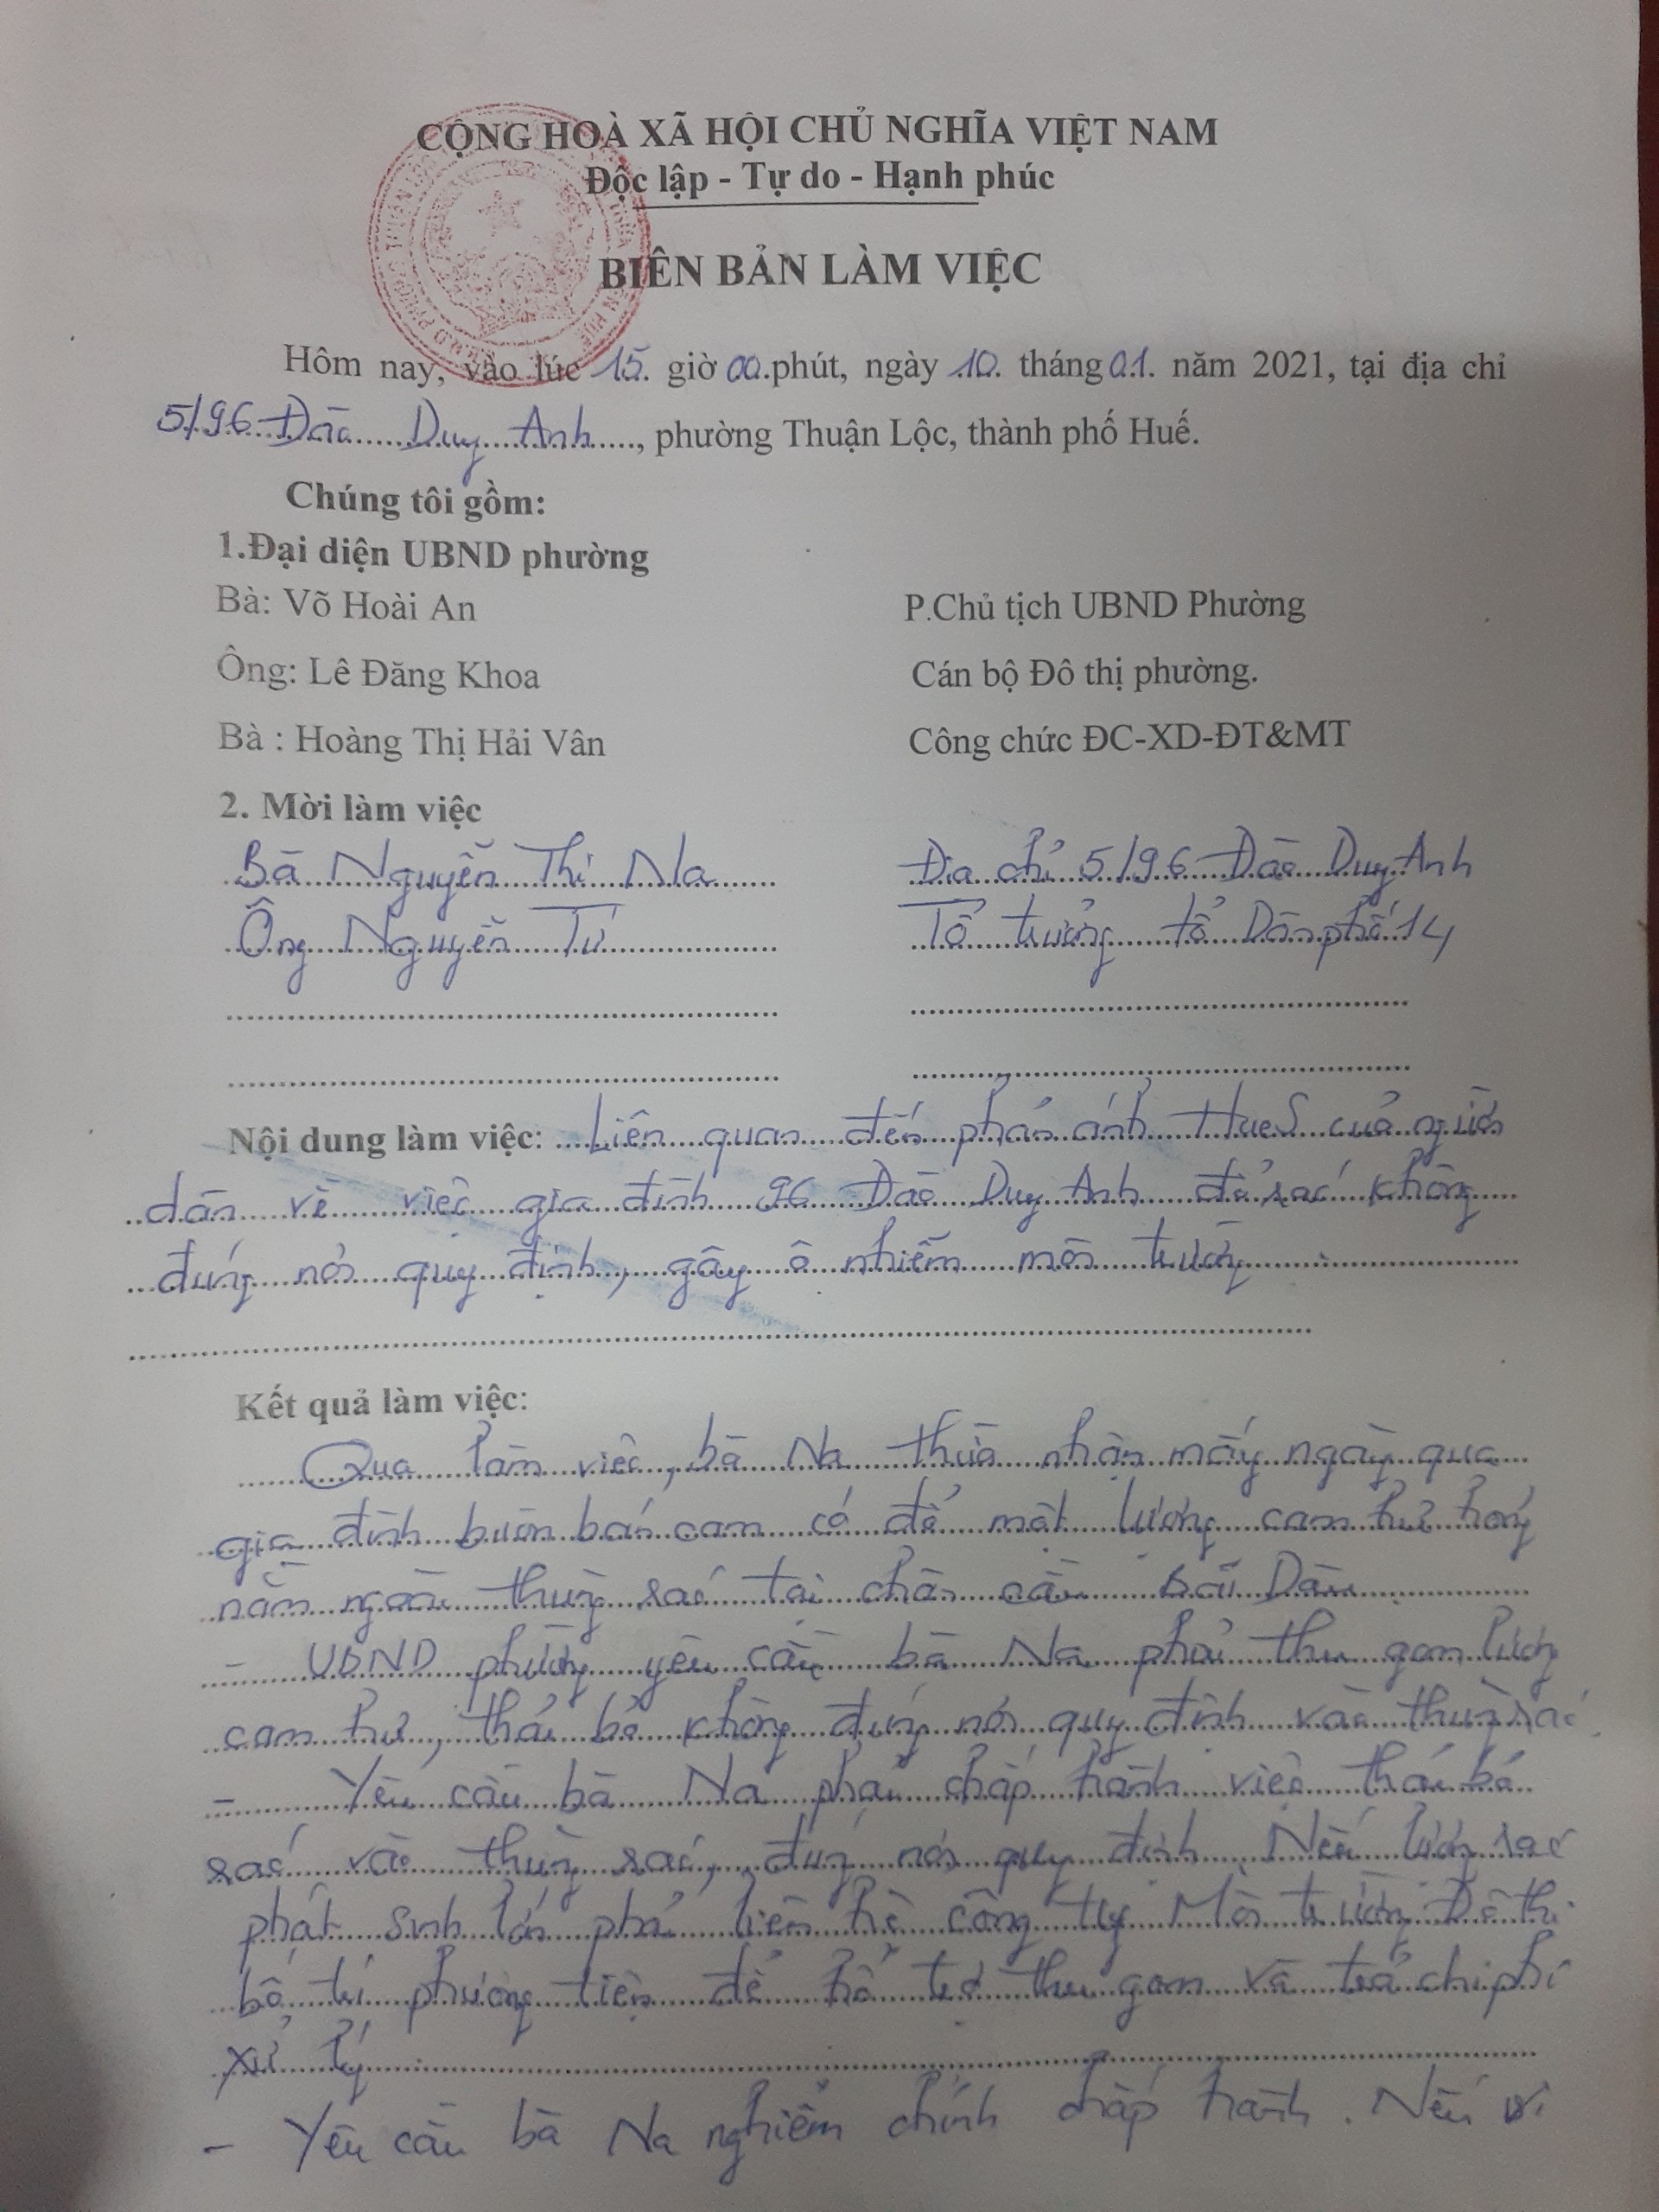 CỘNG HOÀ XÃ HỘI CHỦ NGHĨA VIỆT NAM
Độc lập - Tự do - Hạnh phúc
BIÊN BẢN LÀM VIỆC
Hôm nay, vào lúc 15. giờ 00.phút, ngày 10. tháng 01. năm 2021, tại địa chỉ
5/96 Đào Duy Anh, phường Thuận Lộc, thành phố Huế.
Chúng tôi gồm:
1.Đại diện UBND phường
Bà: Võ Hoài An P.Chủ tịch UBND Phường
Ông: Lê Đăng Khoa Cán bộ Đô thị phường.
Bà : Hoàng Thị Hải Vân Công chức ĐC-XD-ĐT&MT
2. Mời làm việc
Bà Nguyễn Thị Na Địa chỉ 5/96 Đào Duy Anh
Ông Nguyễn Tứ Tổ trưởng tổ Dân phố 14
Nội dung làm việc: Liên quan đến phản ánh HueS của người
dân về việc gia đình 96 Đào Duy Anh để rác không
đúng nơi quy định, gây ô nhiễm môi trường
Kết quả làm việc:
Qua làm việc, bà Na thừa nhận mấy ngày qua
gia đình buôn bán cam có để một lượng cam hư hỏng
nằm ngoài thùng rác tại chân cầu Bãi Dâu
- UBND phường yêu cầu bà Na phải thu gom lượng
cam hư, thải bỏ không đúng nơi quy định vào thùng rác
- Yêu cầu bà Na phải chấp hành việc thải bỏ
rác vào thùng rác, đúng nơi quy định. Nếu lượng rác
phát sinh lớn phải liên hệ công ty Môi trường Đô thị
bố trí phương tiện để hỗ trợ thu gom và trả chi phí
xử lý
- Yêu cầu bà Na nghiêm chỉnh chấp hành. Nếu vi